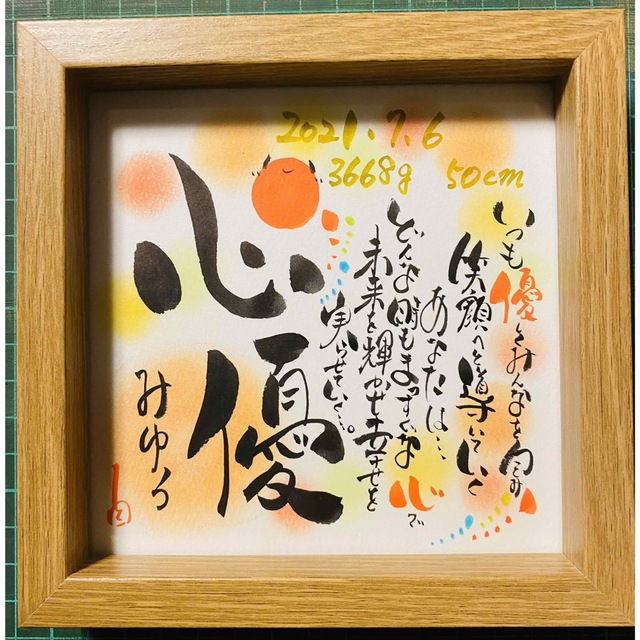 2021.7.6
3668g 50cm
いつも優しくみんなを包み
笑顔へと導いていく
あなたは…
どんな時もまっすぐな心で
未来を輝かせ幸せを
実らせていく…。
心優
みゆう